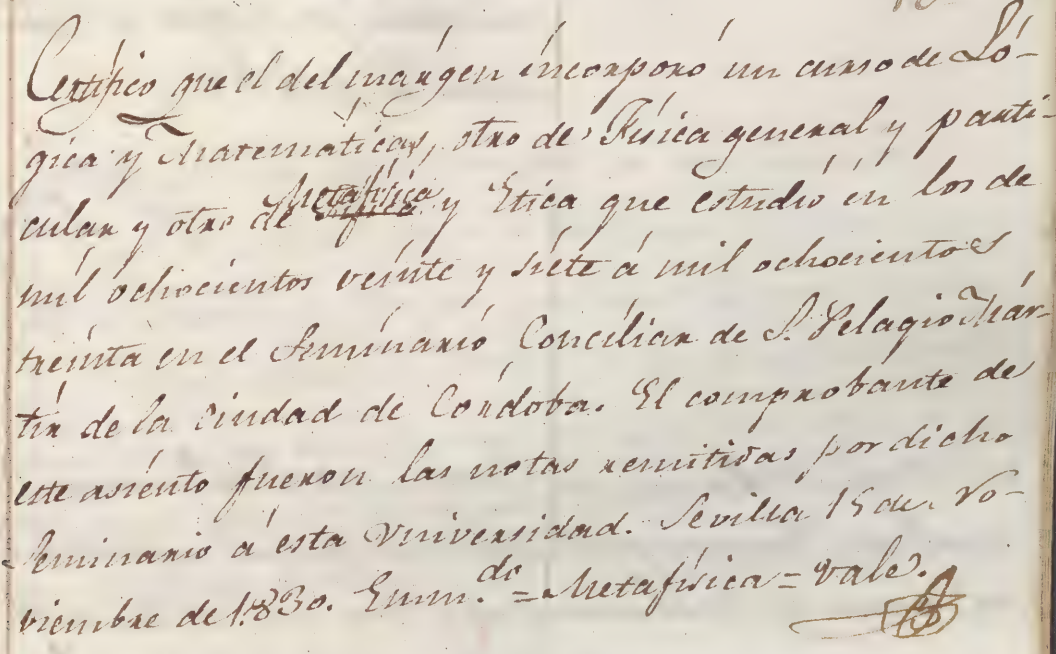 Certifico que el del márgen incorporó un curso de Ló-
gica y Matemáticas, otro de Física general y parti-
cular y otro de Metafísica y Etica que estudió en los de
mil ochocientos veinte y siete á mil ochocientos
treinta en el Seminario Conciliar de S. Pelagio Már-
tir de la Ciudad de Córdoba. El comprobante de
este asiento fueron las notas remitidas por dicho
Seminario á esta Universidad. Sevilla 15 de No-
viembre de 1.830. Enm.do = Metafísica = Vale.